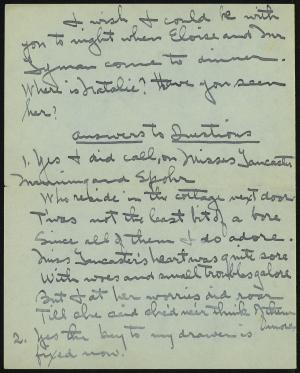 I wish I could be with
you to night when Eloise and Mr
Lyman come to dinner.
Where is Natalie? Have you seen
her?
Answers to Questions
1. Yes I did call, on Misses Lancaster
Manning and Spohr
Who reside in the cottage next door
T'was not the least bit of a bore
Since all of them I do adore.
Miss Lancaster's heart was quite sore
With woes and small troubles galore
But I at her worries did roar
Till she said she'd neer think of them
more
2. Yes the key to my drawer is
fixed now.